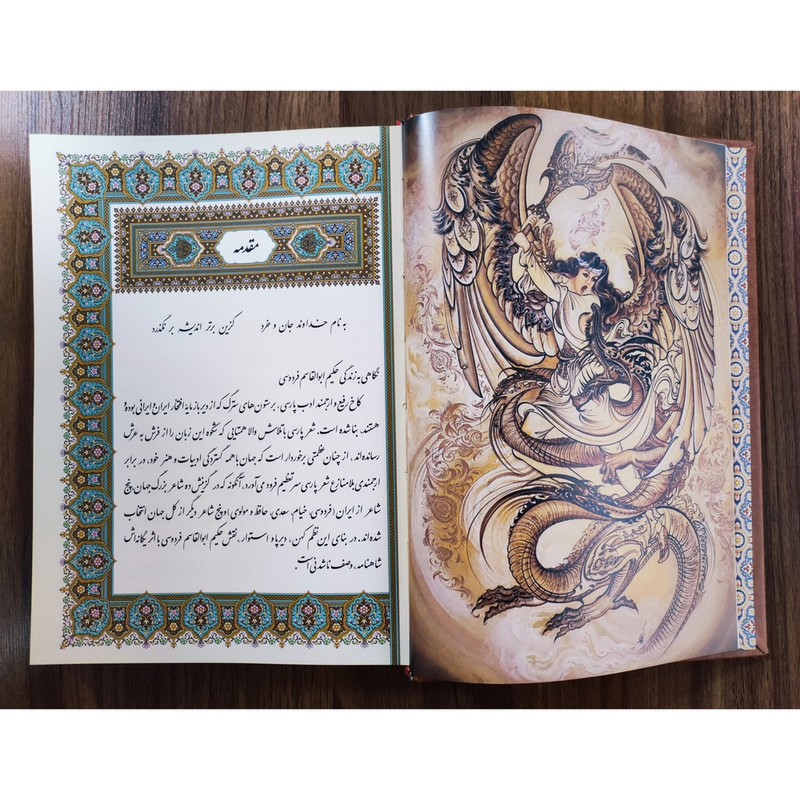 مقدمه
به نام خداوند جان و خرد کزین برتر اندیشه بر نگذرد
نگاهی به زندگی حکیم ابوالقاسم فردوسی
کاخ رفیع و ارجمند ادب پارسی، بر ستون های سترگ که از دیرباز مایهٔ افتخار ایران و ایرانی بوده
هستند، بنا شده است. شعر پارسی با تلاش والا همتایی که شکوه این زبان را از فرش به عرش
رسانده‌اند، از چنان عظمتی برخوردار است که جهان با همه گستردگی ادبیات و هنر خود، در برابر
ارجمندی بلامنازع شعر پارسی سر تعظیم فرود می‌آورد، آنگونه که در گزینش ده شاعر بزرگ جهان، پنج
شاعر از ایران (فردوسی، خیام، سعدی، حافظ و مولوی) و پنج شاعر دیگر از کل جهان انتخاب
شده‌اند. در بنای این نظم کهن، دیرپا و استوار، نقش حکیم ابوالقاسم فردوسی با اثر یگانه‌اش
شاهنامه، وصف ناشدنی است.